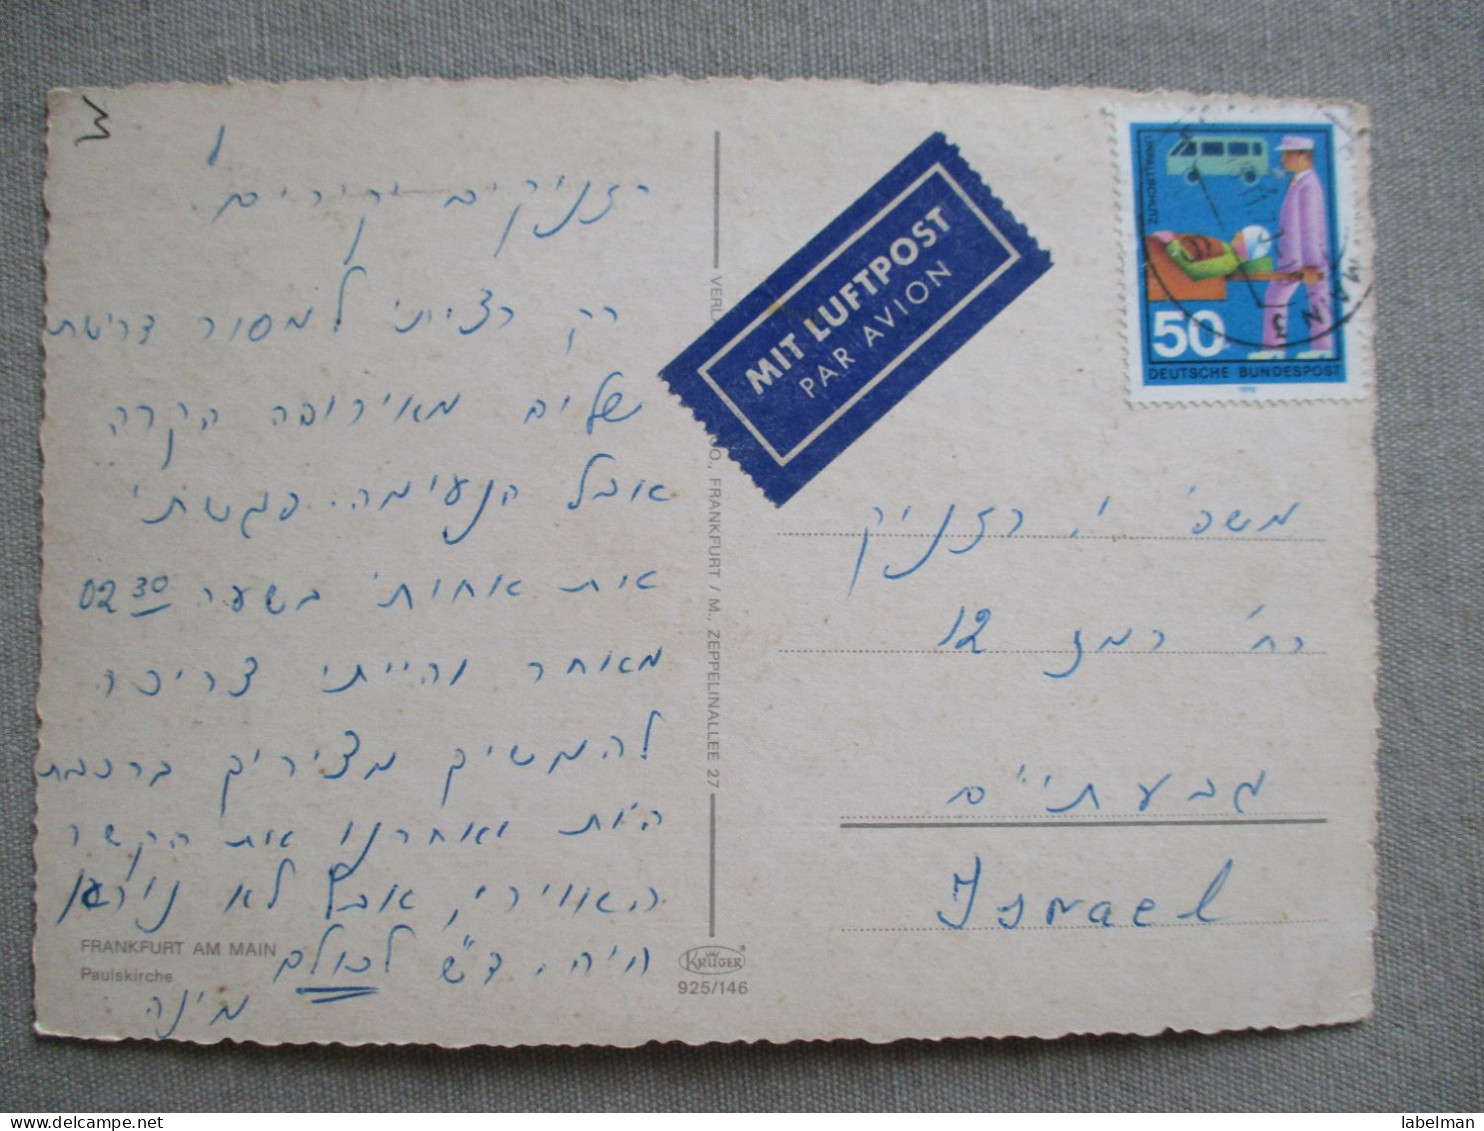 רזניקים יקרים.
רק רציתי למסור דרישת
שלום מאירופה הקרה
אבל הנעימה. פגשתי
את אחותי בשעה 02 30
מאוחר והייתי צריכה
להמשיך מציריך ברכבת
היות ואחרנו את הקשר
האווירי, אבל לא נורא
היה. ד"ש לכולם
מינה
FRANKFURT AM MAIN
Paulskirche
FRANKFURT / M., ZEPPELINALLEE 27
KRÜGER
925/146
MIT LUFTPOST
PAR AVION
UNFALLSCHUTZ
50
DEUTSCHE BUNDESPOST
1970
משפ' י. רזניק
רח' רמז 12
גבעתיים
Israel